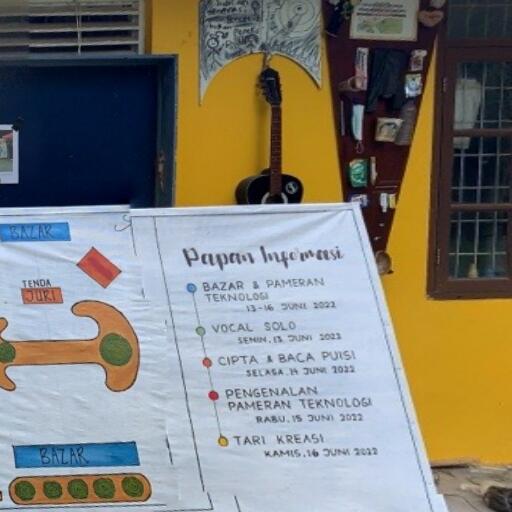 BAZAR
TENDA
JURI
BAZAR
Papan Informasi
BAZAR & PAMERAN
TEKNOLOGI
13-16 JUNI 2022
VOCAL SOLO
SENIN, 13 JUNI 2022
CIPTA & BACA PUISI
SELASA, 14 JUNI 2022
PENGENALAN
PAMERAN TEKNOLOGI
RABU, 15 JUNI 2022
TARI KREASI
KAMIS, 16 JUNI 2022